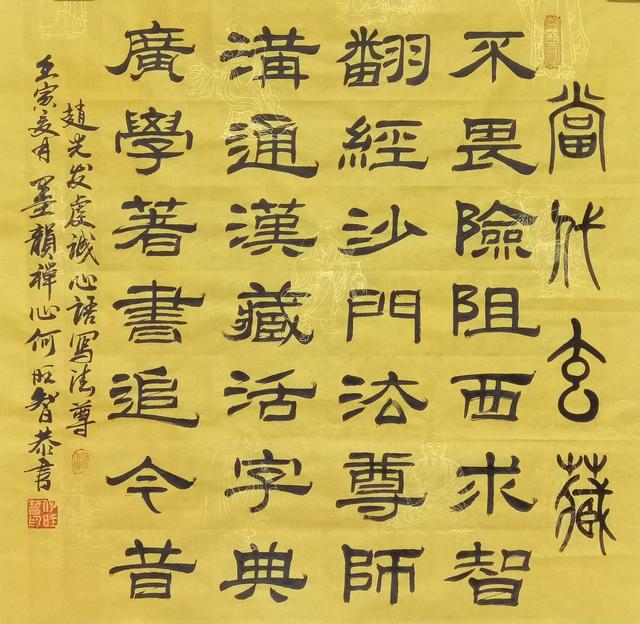 當代玄藏
不畏險阻西求智
翻經沙門法尊師
溝通漢藏活字典
廣學著書追今昔
趙先发虔誠心語寫法尊
壬寅亥月墨韻禪心何旺智恭書